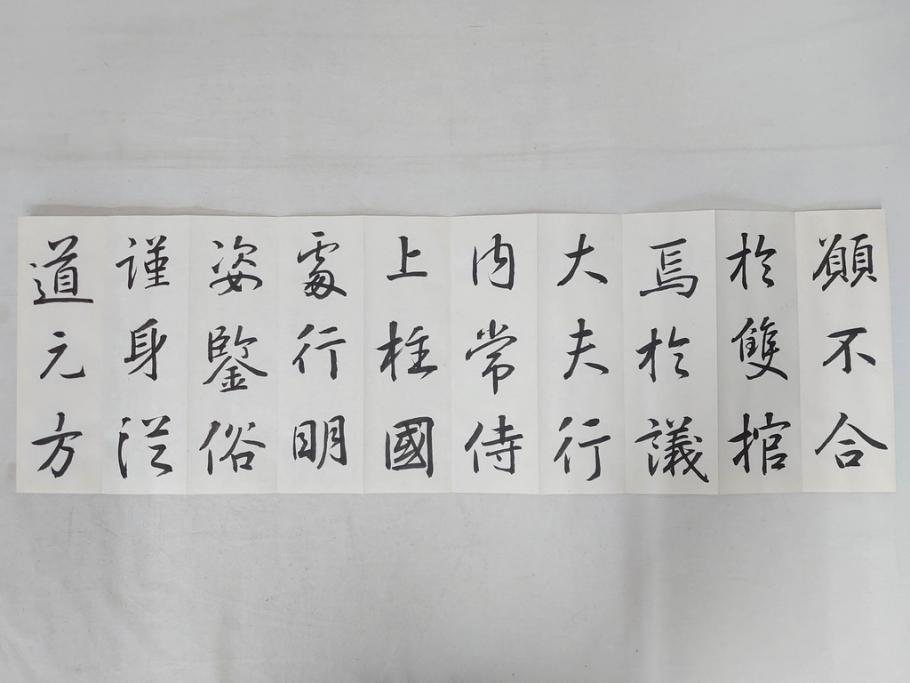 願不合
於雙棺
焉於議
大夫行
内常侍
上柱國
處行明
姿鑒俗
謹身從
道元方